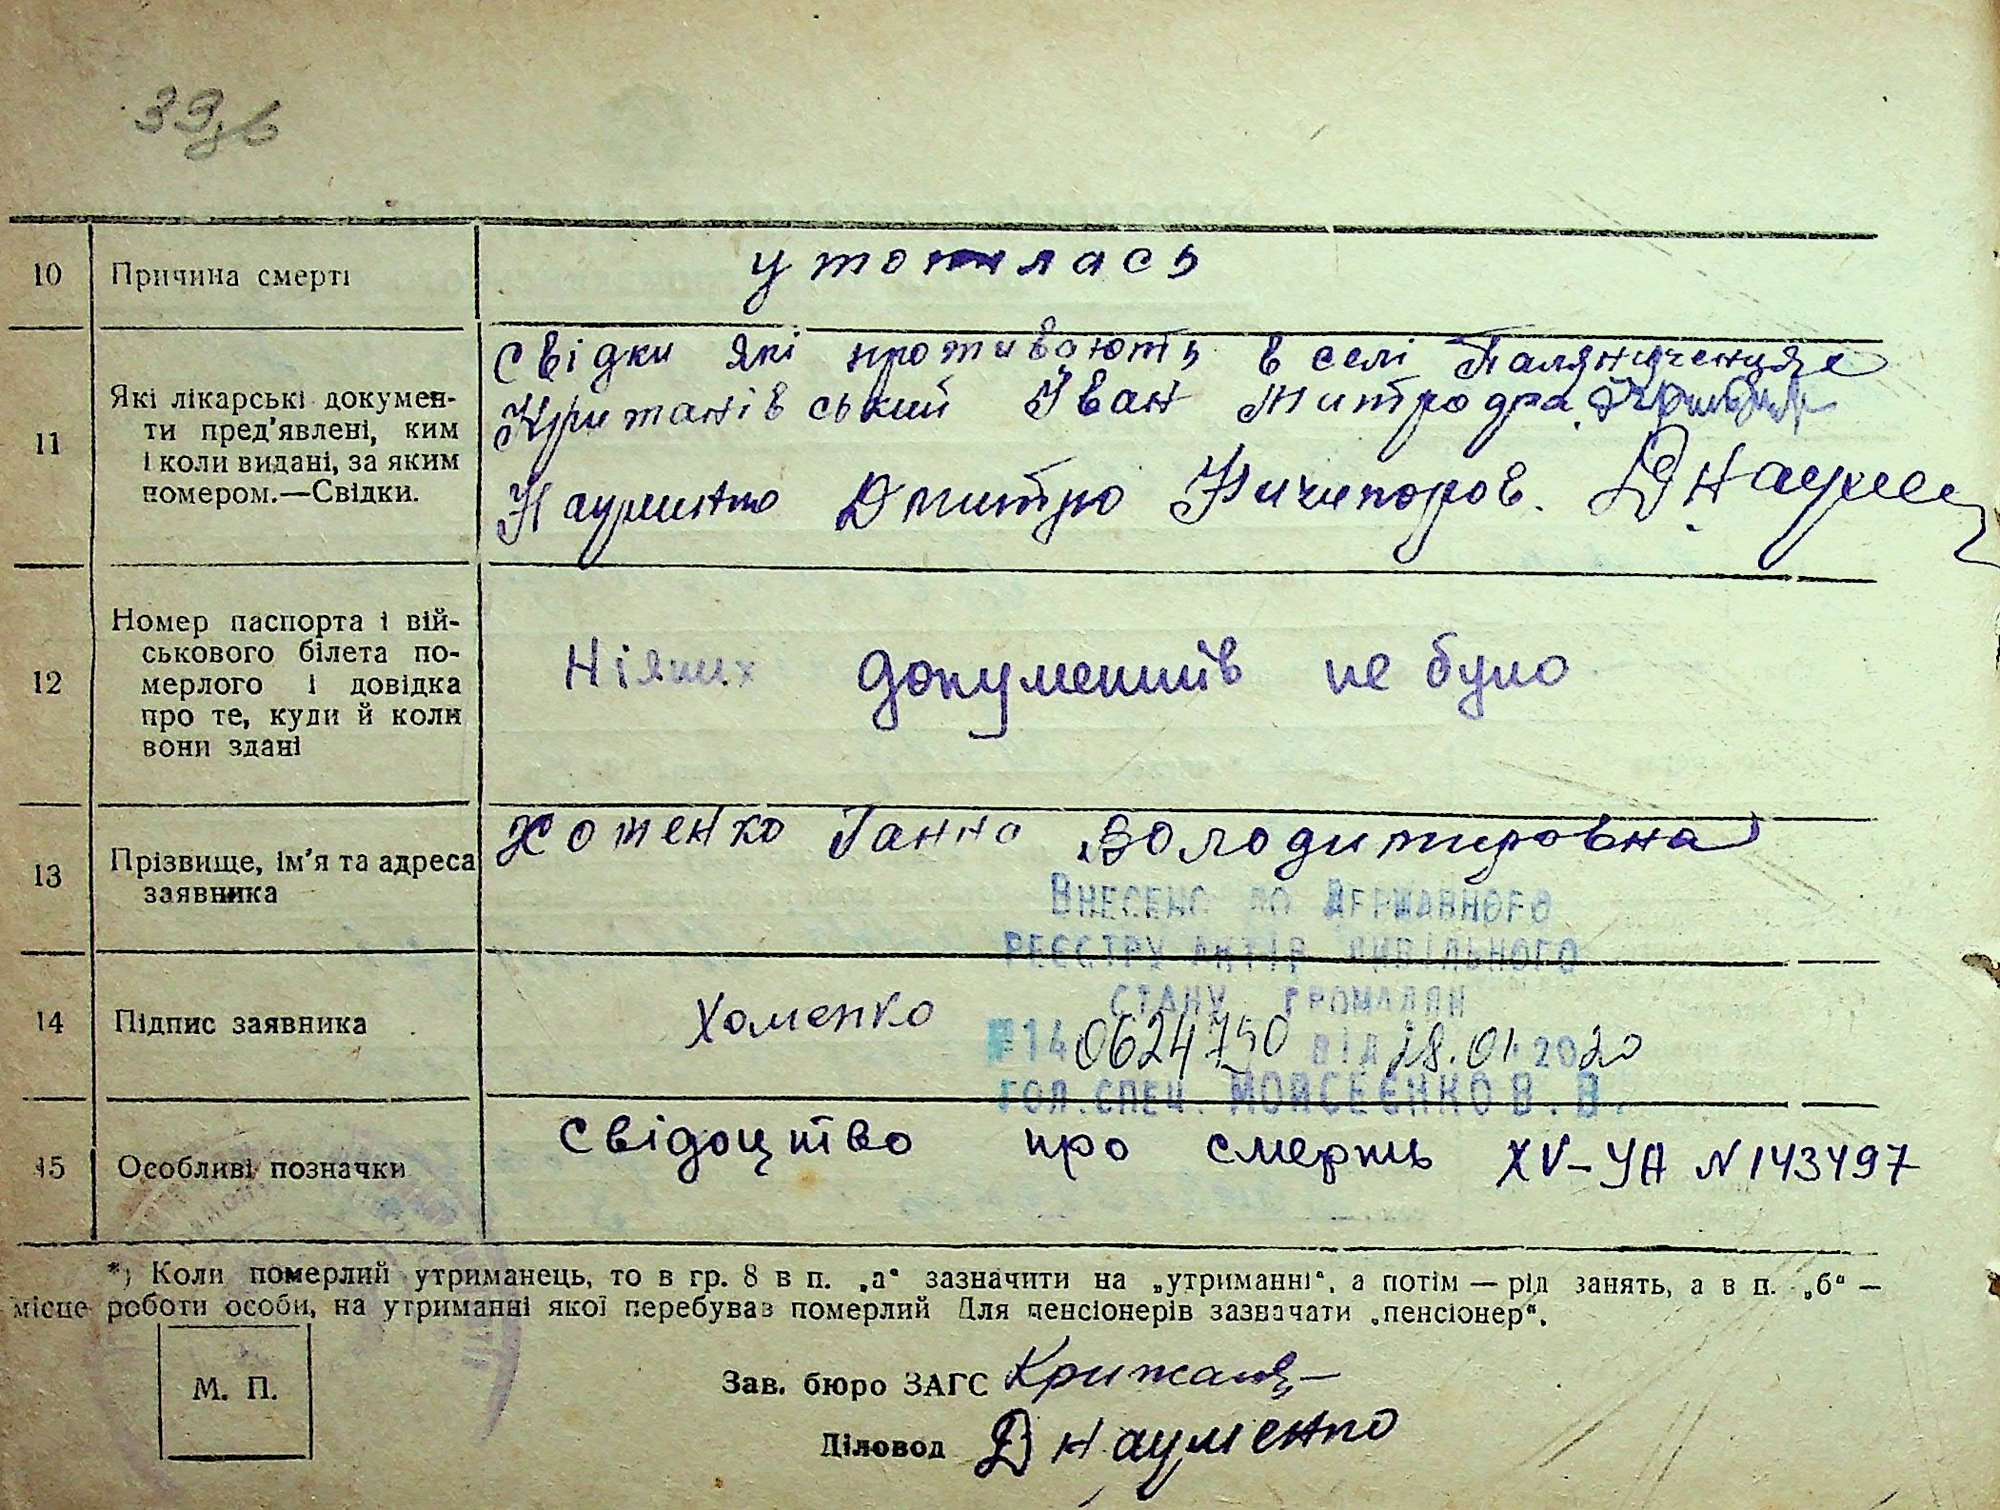 39зв
10 Причина смерті утопилась
11 Які лікарські докумен-
ти пред'явлені, ким
і коли видані, за яким
номером.—Свідки.
Свідки які проживають в селі Паляниченцях
Крижанівський Іван Митродра
Науменко Дмитро Ничипоров. ДНаумен
12 Номер паспорта і вій-
ськового білета по-
мерлого і довідка
про те, куди й коли
вони здані
Ніяких документів не було
13 Прізвище, ім'я та адреса
заявника
Хоменко Ганна Володимировна
Внесено до Державного
реєстру актів цивільного
стану громадян
№14 0624750 від 28.01.2020
гол.спец. Мойсеєнко В.В.
14 Підпис заявника Хоменко
15 Особливі позначки Свідоцтво про смерть XV-УА N143497
*) Коли померлий утриманець, то в гр. 8 в п. „а“ зазначити на „утриманні“, а потім — рід занять, а в п. „б“ —
місце роботи особи, на утриманні якої перебував померлий Для пенсіонерів зазначати „пенсіонер“.
М. П.
Зав. бюро ЗАГС
Діловод ДНауменко